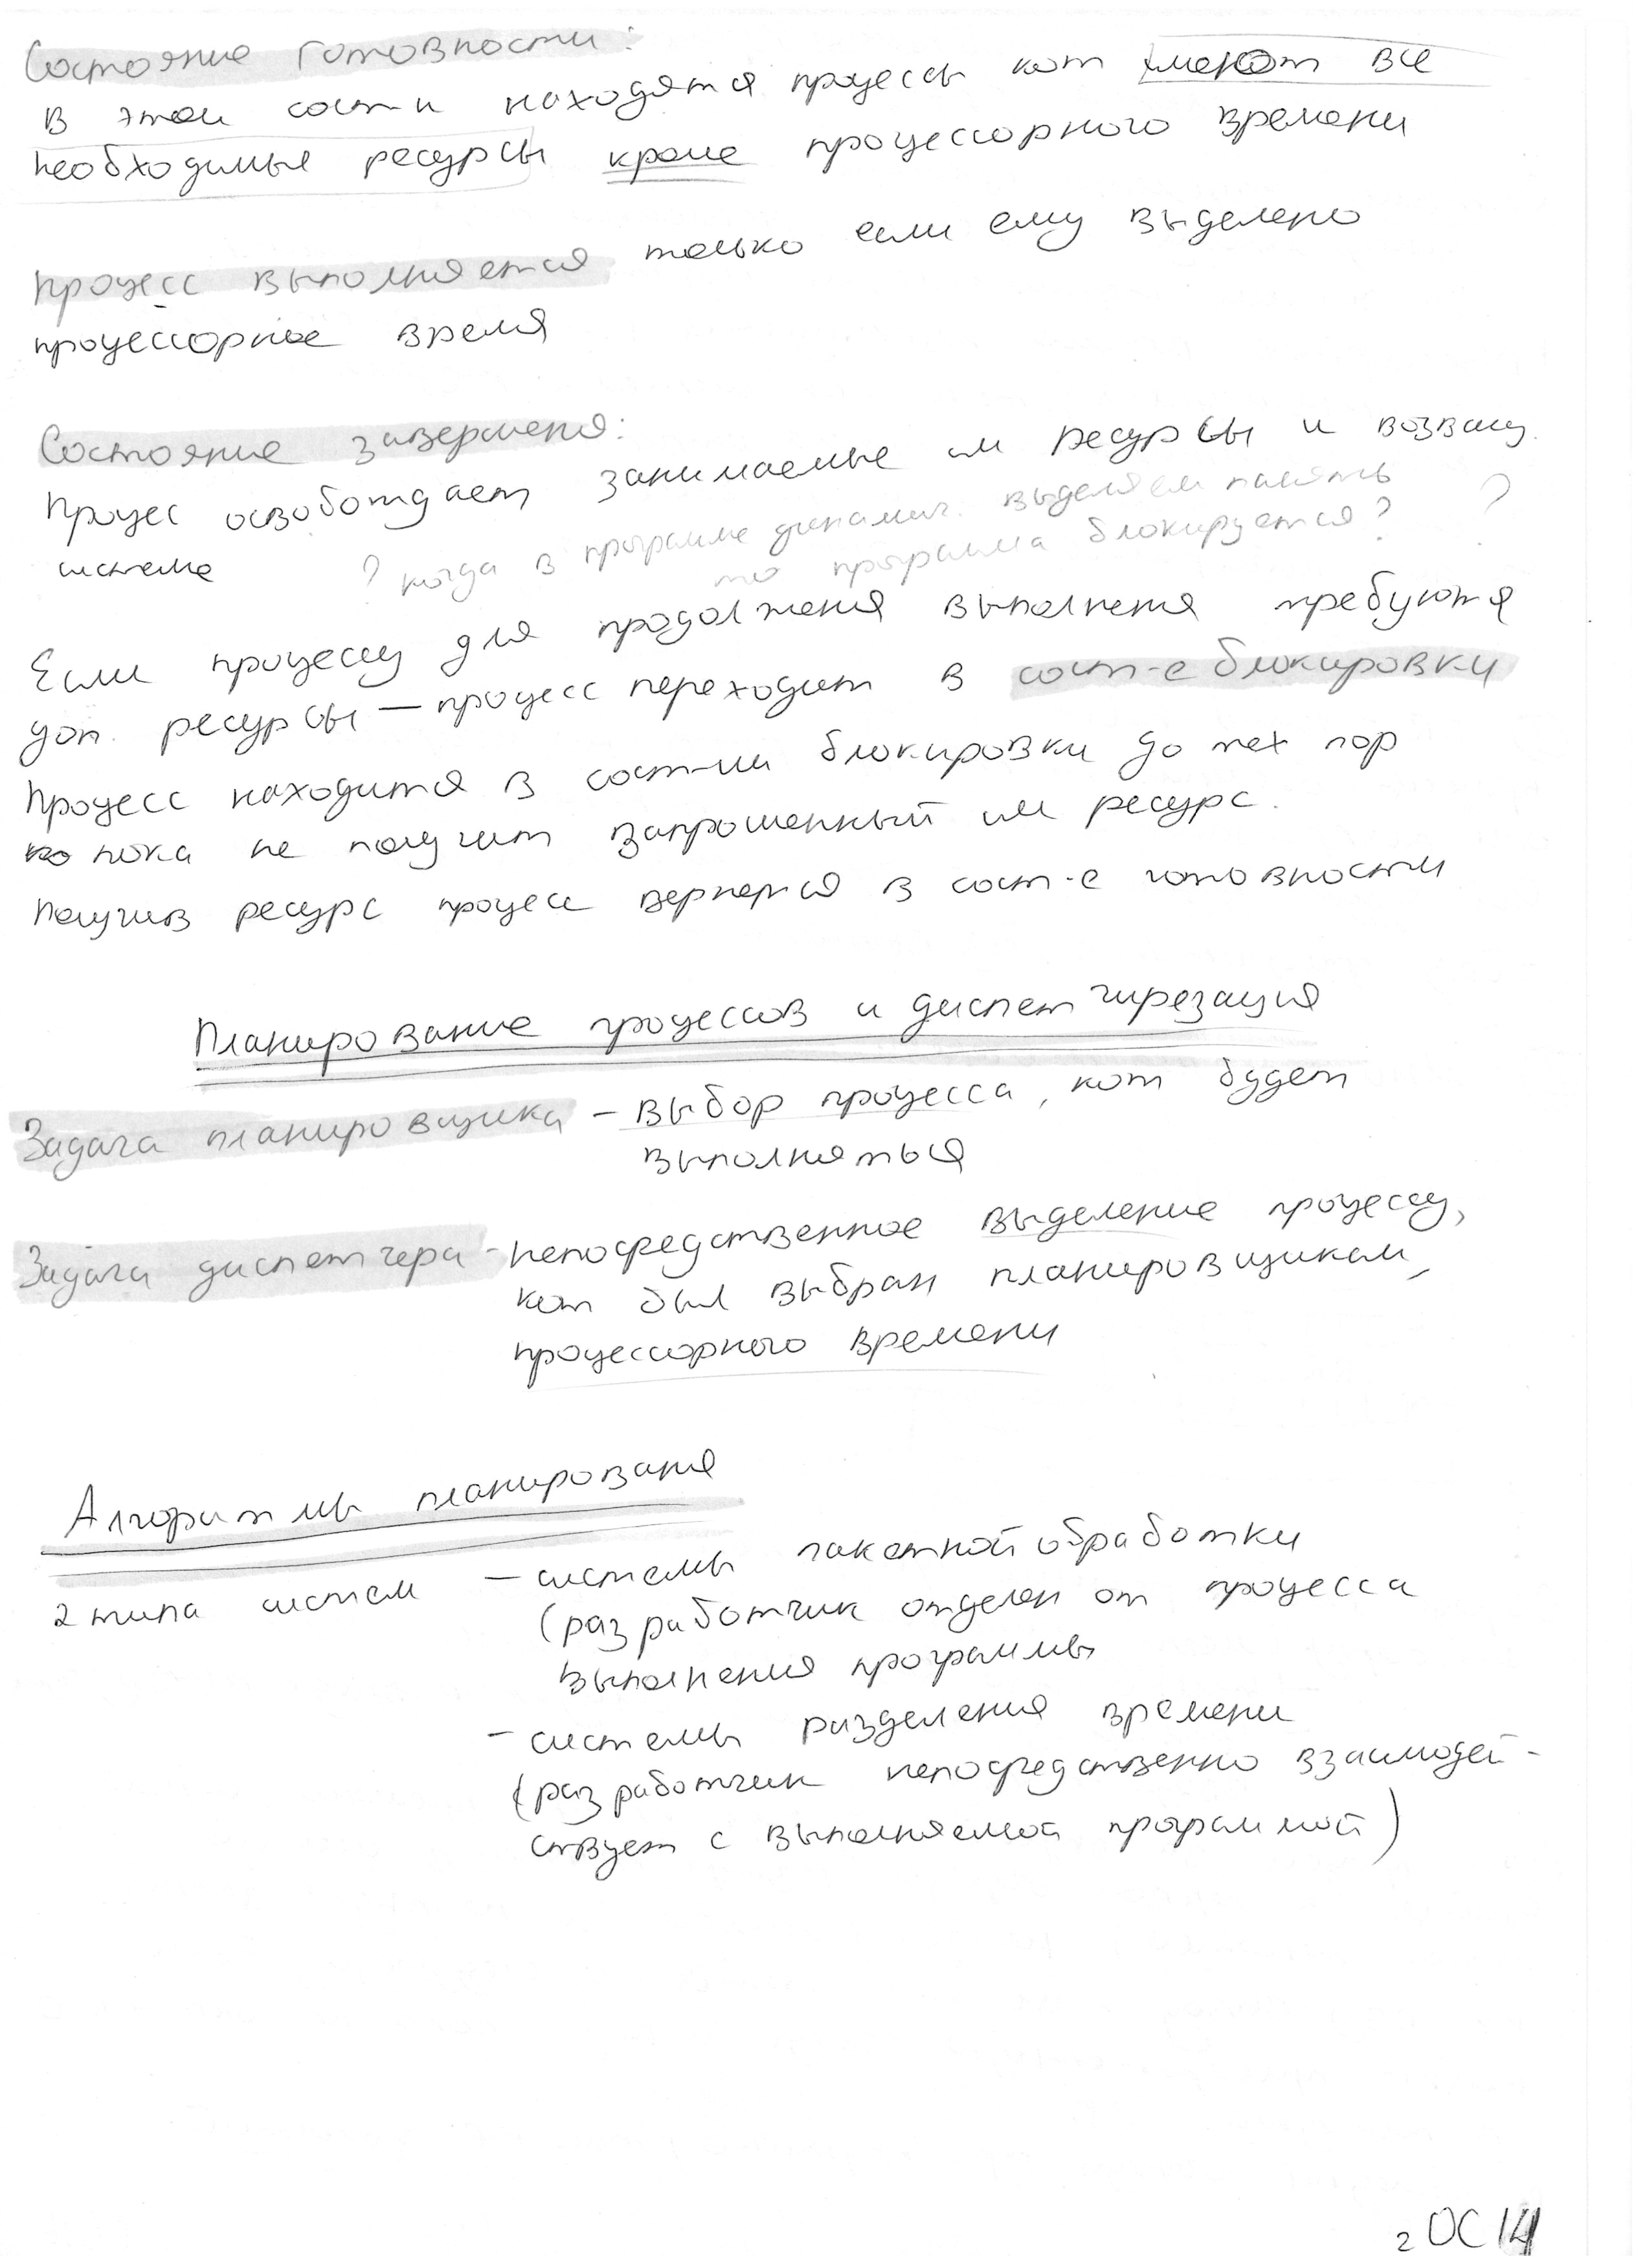 Состояние готовности:
В этом сост-и находятся процессы кот имеют все
необходимые ресурсы кроме процессорного времени
Процесс выполняется только если ему выделено
процессорное время
Состояние завершения:
Процес освобождает занимаемые им ресурсы и возвращ.
системе
? когда в программе динамич. выделяем память ?
то программа блокируется?
Если процессу для продолжения выполнения требуются
доп. ресурсы — процесс переходит в сост-е блокировки
Процесс находится в сост-ии блокировки до тех пор
пока не получит запрошенный им ресурс.
Получив ресурс процесс вернется в сост-е готовности
Планирование процессов и диспетчирезация
Задача планировщика – выбор процесса, кот будет
выполняться
Задача диспетчера - непосредственное выделение процессу,
кот был выбран планировщиком,
процессорного времени
Алгоритмы планирования
2 типа систем – системы пакетной обработки
(разработчик отделен от процесса
выполнения программы
– системы разделения времени
(разработчик непосредственно взаимодей-
ствует с выполняемой программой)
2 ОС 14